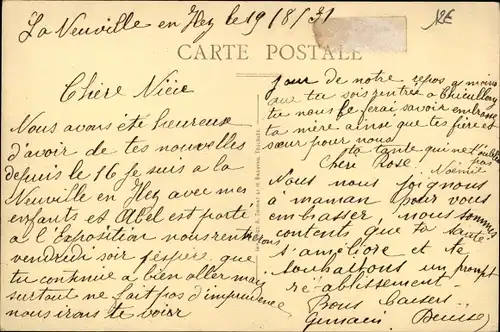 La Neuville en Hez le 19/8/31
CARTE POSTALE
Chère Nièce
Nous avons été heureuse
d'avoir de tes nouvelles
depuis le 16 je suis a la
Neuville en Hez avec mes
enfants et Abel est parti
a l'Exposition nous rentrerons
vendredi soir j'espère que
tu continue a bien aller mais
surtout ne fait pas d'imprudence
nous irons te voir
jour de notre repos a moins
que tu sois rentrée a
tu nous le ferai savoir embrasse
ta mère ainsi que tes frère et
sœur pour nous
ta tante qui ne t'oublie
pas
Noémie
Chère Rose
Nous nous joignons
a maman pour vous
embrasser, nous sommes
contents que ta santé
s'améliore et te
souhaitons un prompt
rétablissement
Bons baisers
Germain Denise